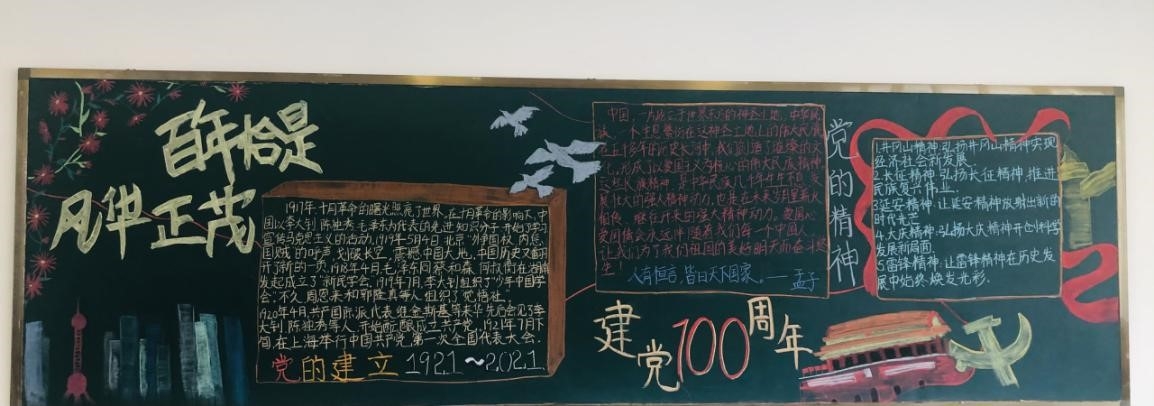 百年恰是
风华正茂
1917年,十月革命的曙光照亮了世界,在十月革命的影响下,中
国以李大钊 陈独秀 毛泽东为代表的先进知识分子开始了学习
宣传马克思主义的活动。1919年5月4日 北京“外争国权,内惩
国贼”的呼声,划破长空,震撼中国大地,中国历史又翻
开了新的一页。1918年4月,毛泽东同蔡和森 何叔衡在湖南
发起成立了“新民学会。1919年7月,李大钊组织了“少年中国学
会,不久,周恩来和郭隆真等人组织了觉悟社。
1920年4月,共产国际派代表维金斯基等来华先后会见了李
大钊,陈独秀等人,开始酝酿成立共产党。1921年7月下
旬,在上海举行中国共产党,第一次全国代表大会.
党的建立 1921~2021.
中国,一片屹立于世界东方的神圣土地。中华民
族,一个生息繁衍在这神圣土地上的伟大民族。
在五千多年的历史长河中,我们创造了连续的文
化,形成了以爱国主义为核心的伟大民族精神
这些民族精神,是中华民族几千年生生不息,发
展壮大的强大精神动力。也是在未来岁月里薪火
相传,继往开来的强大精神动力。爱国心
爱国情会永远伴随着我们每一个中国人,
让我们为了我们祖国的美好明天而奋斗终
生!
人有恒言,皆曰天下国家。——孟子
建党100周年
党的精神
1.井冈山精神:弘扬井冈山精神,实现
经济社会新发展.
2.长征精神:弘扬长征精神,推进
民族复兴伟业.
3.延安精神:让延安精神放射出新的
时代光芒
4.大庆精神:弘扬大庆精神开创科学
发展新局面.
5.雷锋精神:让雷锋精神在历史发
展中始终焕发光彩.